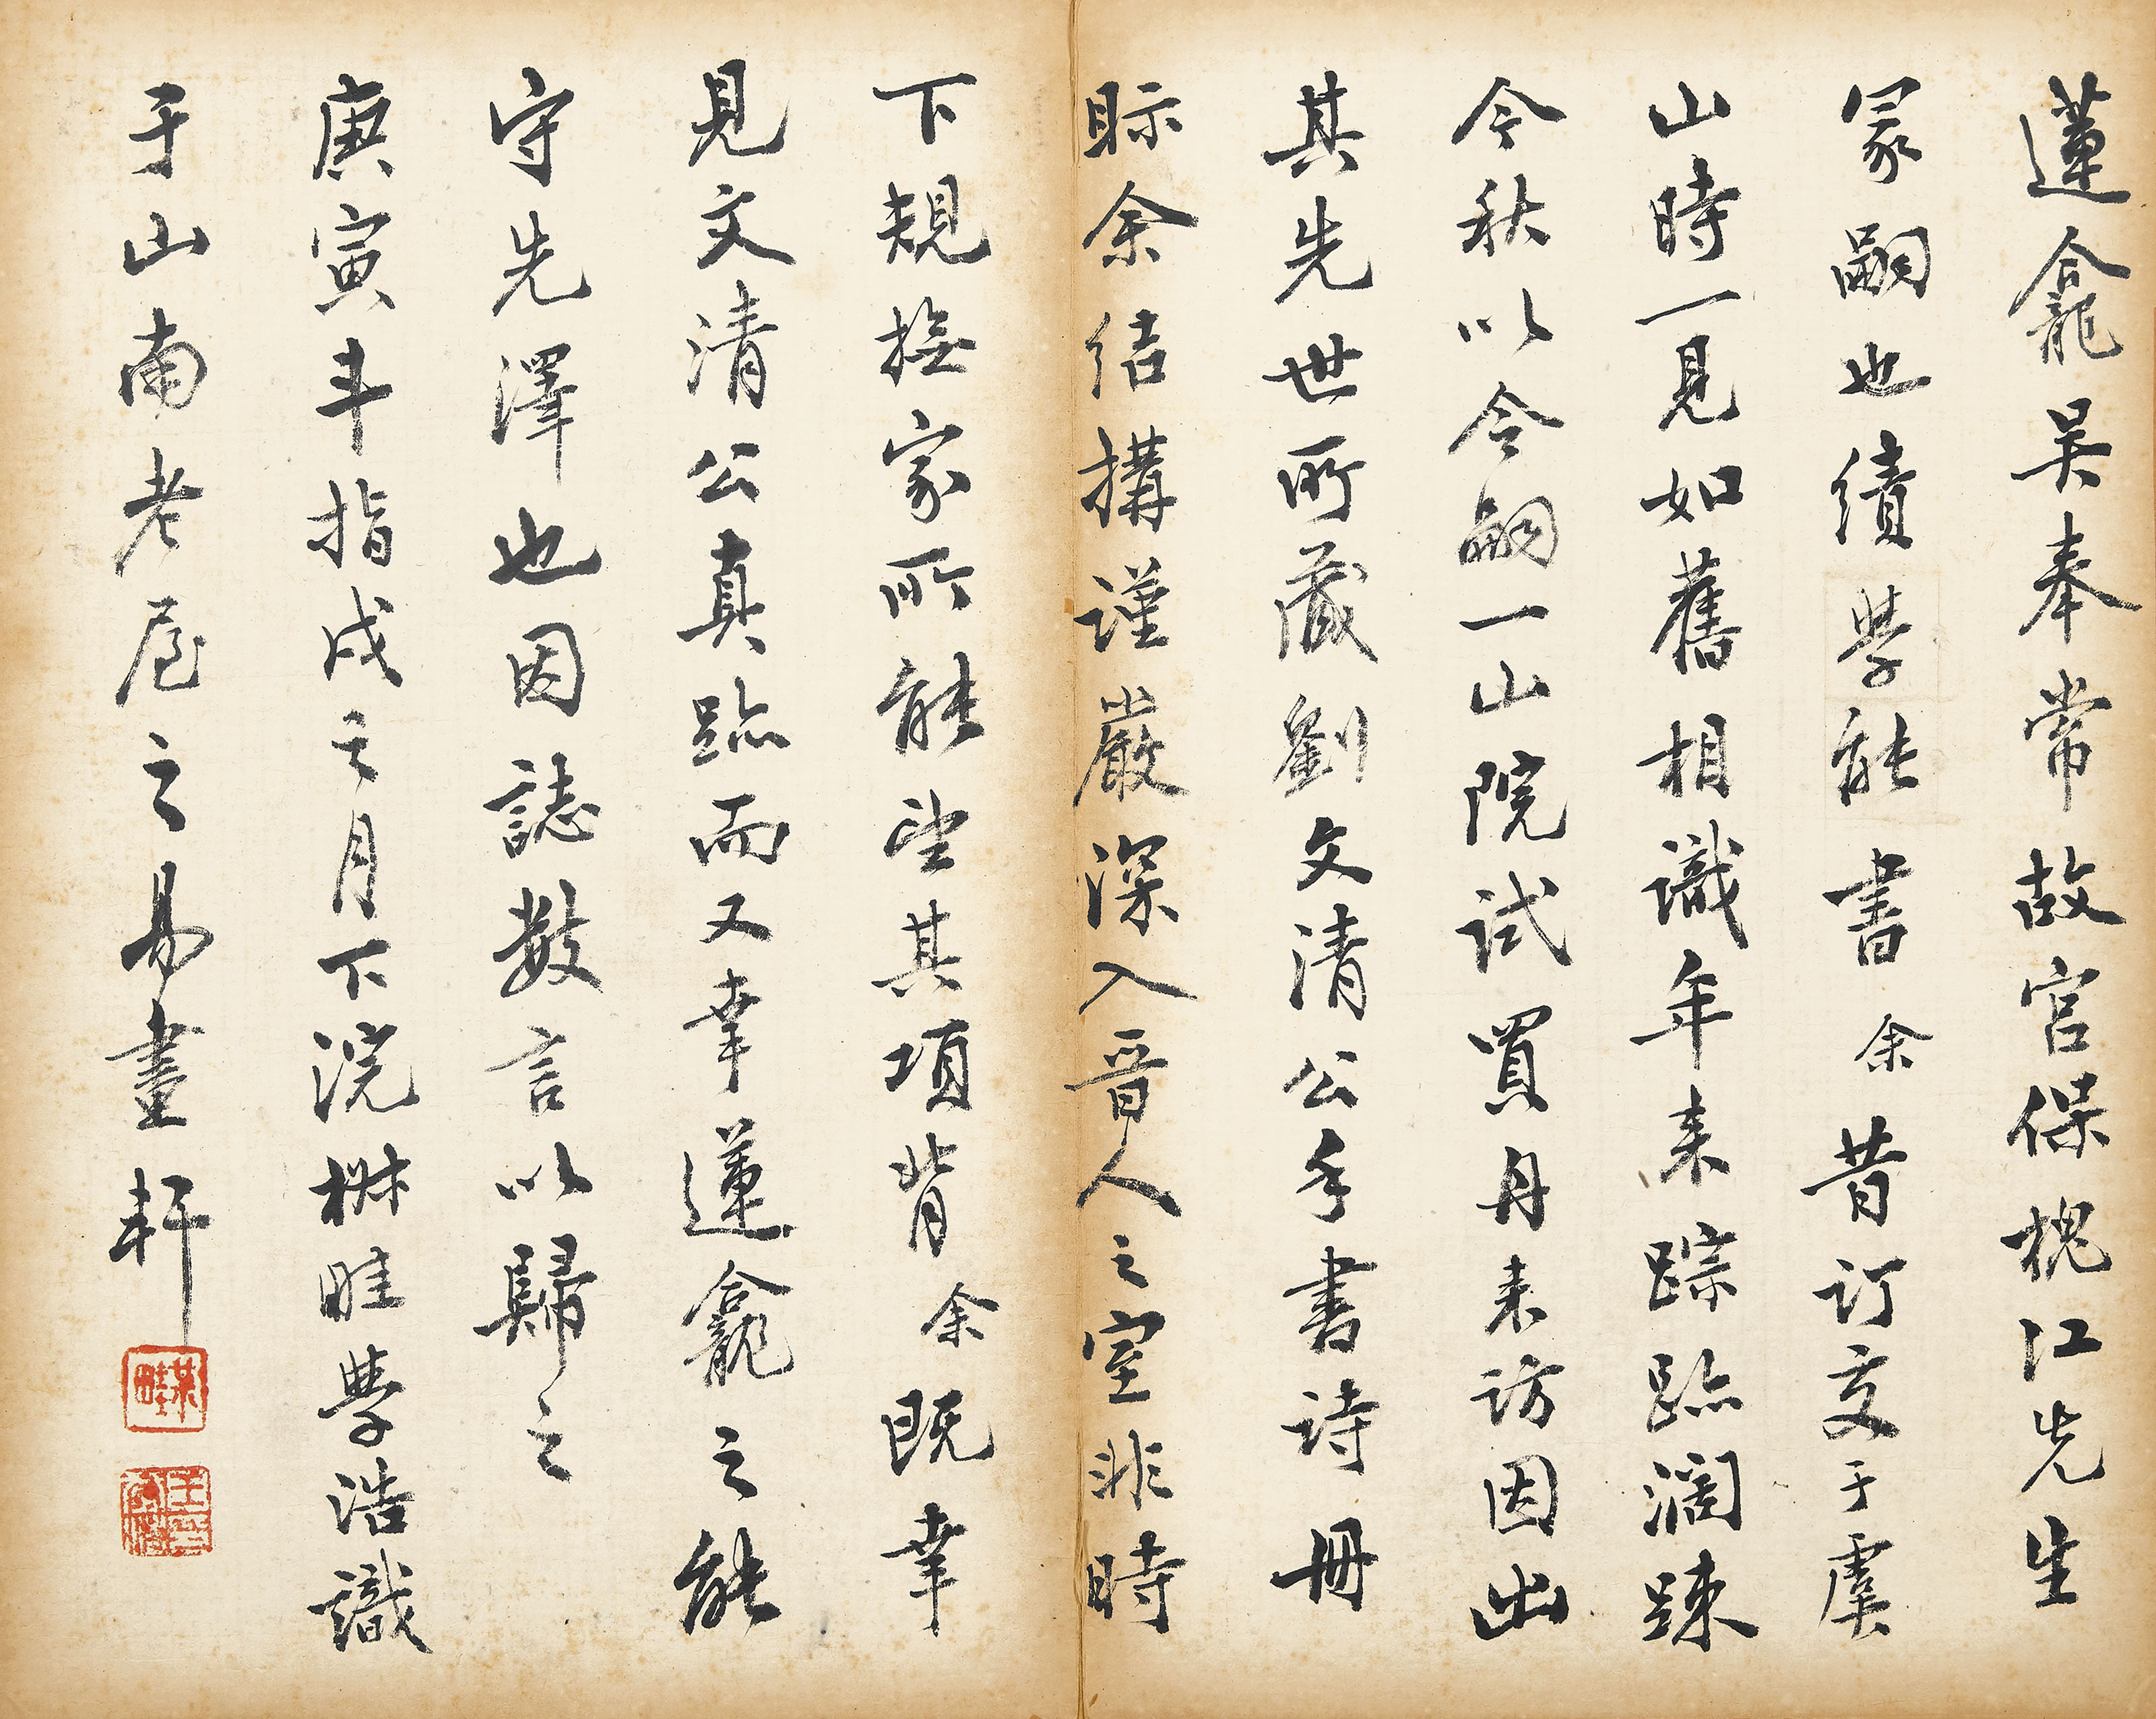 蓮龕吴奉常故宫保槐江先生
冢嗣也績學能書余昔訂交于虞
山時一見如舊相識年来踪跡濶踈
今秋以令嗣一山院試買舟来訪因出
其先世所藏劉文清公手書詩冊
眎余結搆謹嚴深入晋人之室非時
下規橅家所能望其項背余既幸
見文清公真跡而又幸蓮龕之能
守先澤也因誌數言以歸之
庚寅斗指戌之月下浣楳畦學浩識
于山南老屋之易畫軒
某畦